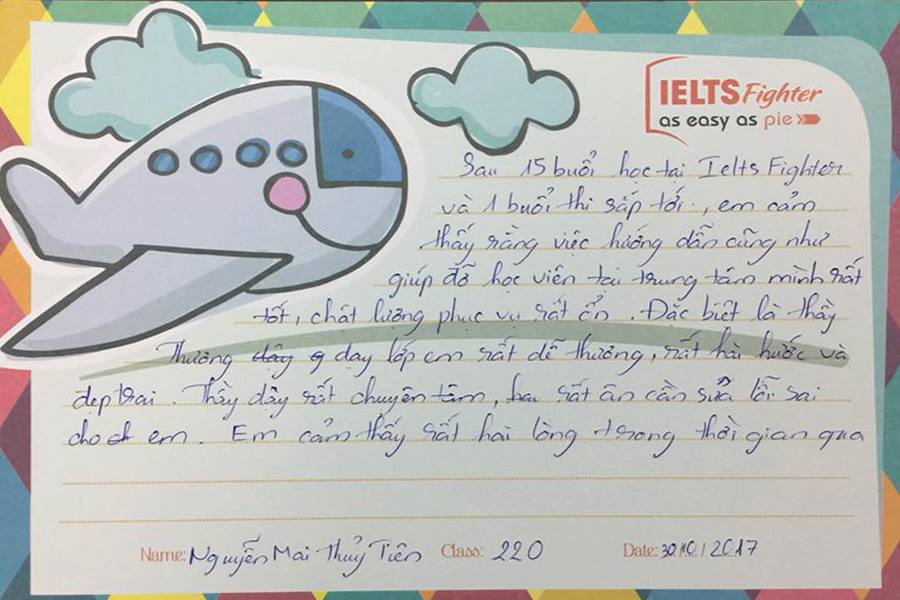 IELTS Fighter
as easy as pie
Sau 15 buổi học tại Ielts Fighter
và 1 buổi thi sắp tới, em cảm
thấy rằng việc hướng dẫn cũng như
giúp đỡ học viên tại trung tâm mình rất
tốt, chất lượng phục vụ rất ổn. Đặc biệt là thầy
Thường dạy lớp em rất dễ thương, rất hài hước và
đẹp trai. Thầy dạy rất chuyên tâm, rất ân cần sửa lỗi sai
cho em. Em cảm thấy rất hài lòng trong thời gian qua
Name: Nguyễn Mai Thuỷ Tiên Class: 220 Date: 30/10/2017